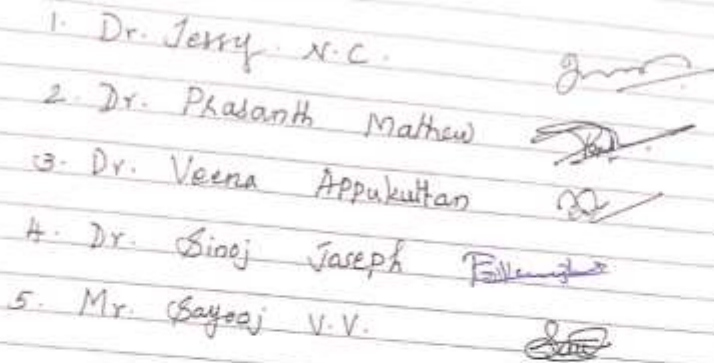 1. Dr. Jerry. N.C.
2. Dr. Prasanth Mathew
3. Dr. Veena Appukuttan
4. Dr. Sinoj Joseph
5. Mr. Sayooj V.V.